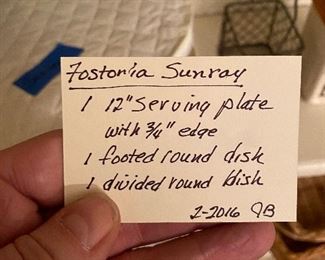 Fostoria Sunray
1 12" Serving plate
with 3/4" edge
1 footed round dish
1 divided round bish
2-2016 JB